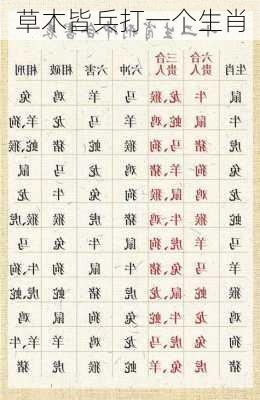 草木皆兵打一个生肖
生肖 六合贵人 三合贵人 六冲 六害 相破 相刑
鼠 牛 龙,猴 马 羊 鸡 兔
牛 鼠 蛇,鸡 羊 马 龙 羊,狗
虎 猪 马,狗 猴 蛇 猪 蛇,猴
兔 狗 羊,猪 鸡 龙 马 鼠
龙 鸡 鼠,猴 狗 兔 牛 龙
蛇 猴 牛,鸡 猪 虎 猴 猴,虎
马 羊 虎,狗 鼠 牛 兔 马
羊 马 兔,猪 牛 鼠 狗 狗,牛
猴 蛇 鼠,龙 虎 猪 蛇 蛇,虎
鸡 龙 牛,蛇 兔 狗 鼠 鸡
狗 兔 虎,马 龙 鸡 羊 羊,牛
猪 虎 兔,羊 蛇 猴 虎 猪